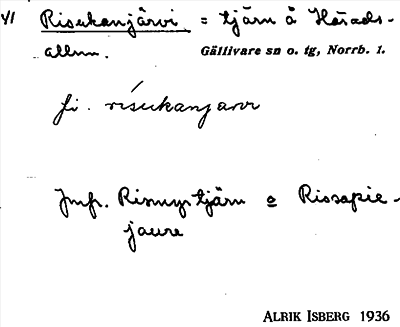 41 Risukanjärvi = tjärn å Härads-
allm.
Gällivare sn o. tg, Norrb. l.
fi. risukanjarvi
Jmf. Rismyrtjärn o Rissapie-
jaure
ALRIK ISBERG 1936